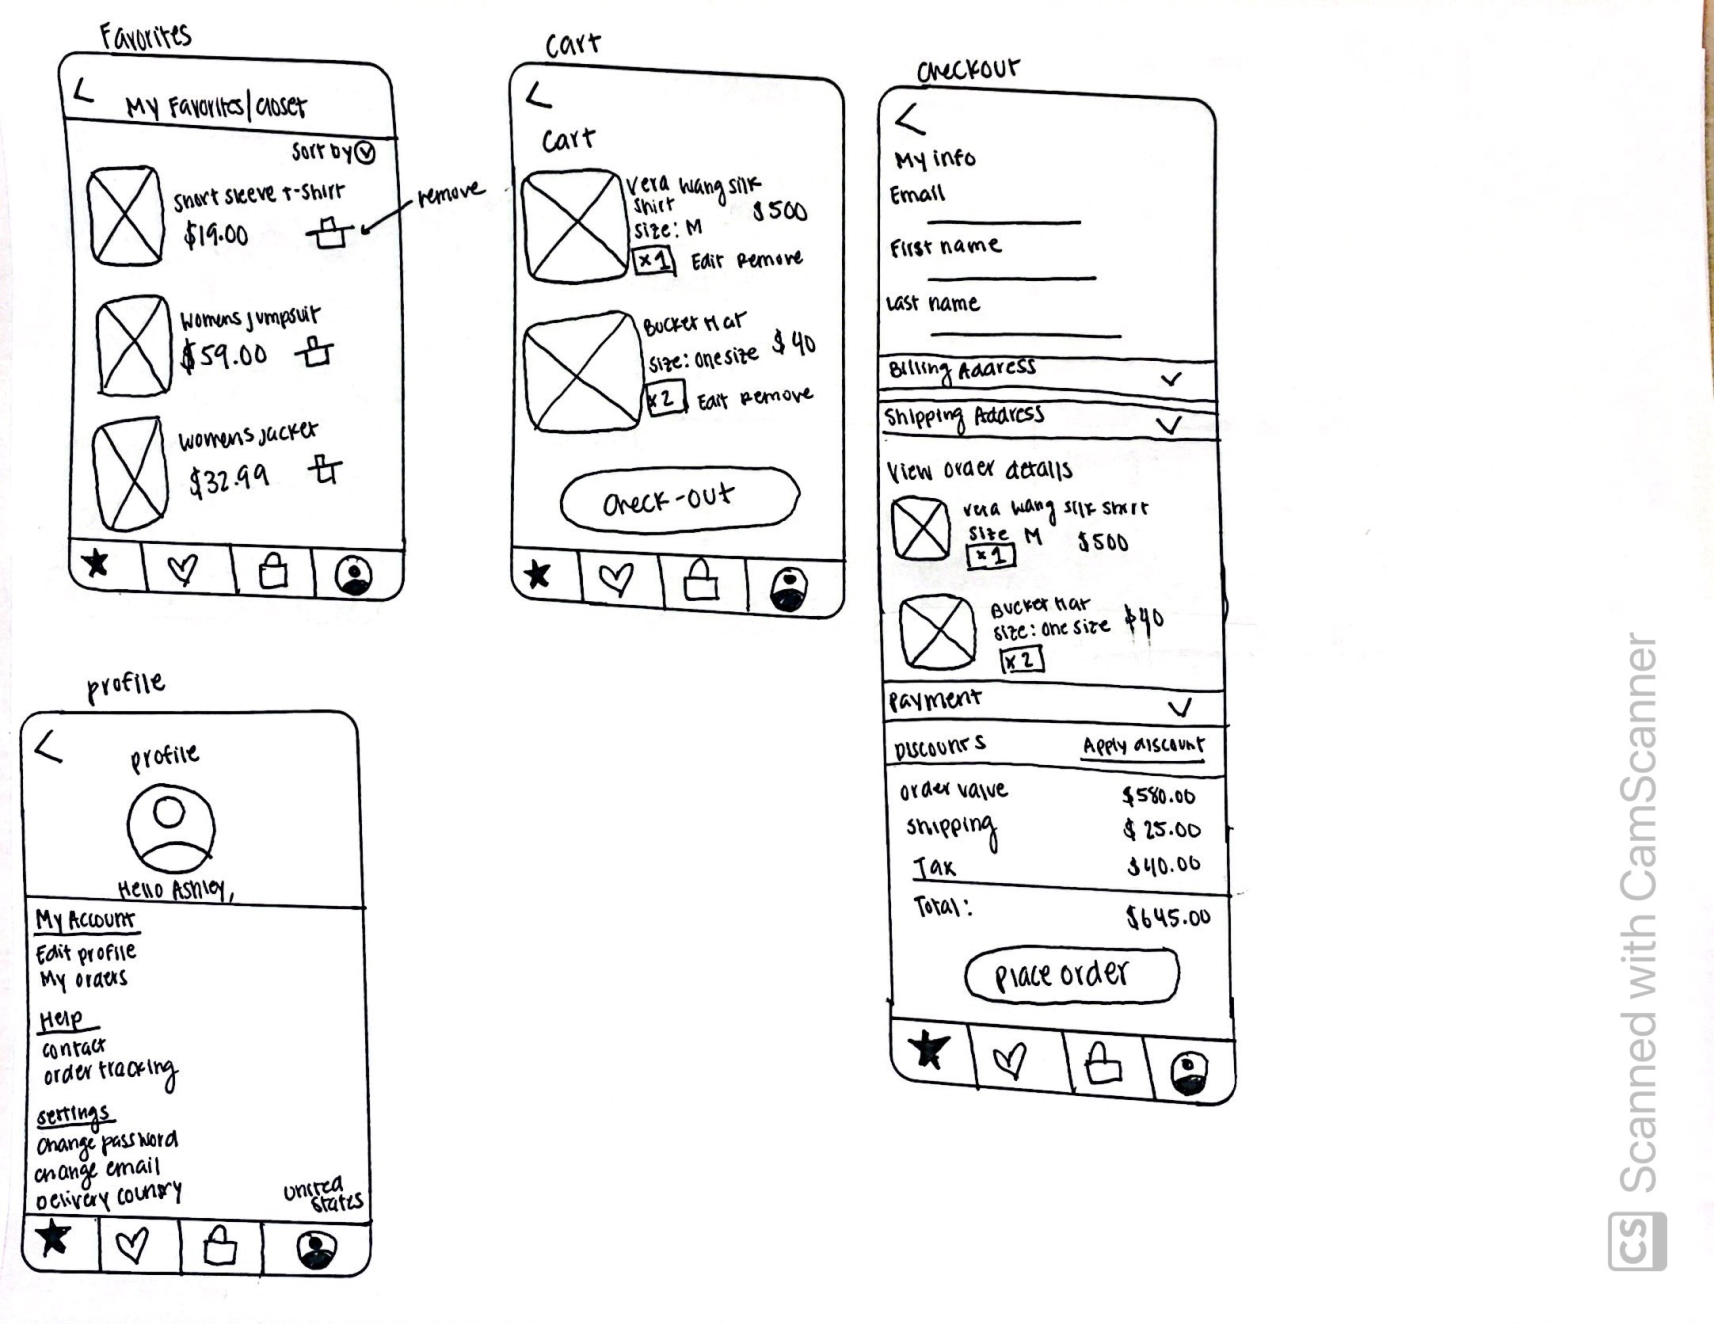 Favorites
My Favorites/closet
Sort by
Short sleeve T-Shirt
$19.00
remove
Womens jumpsuit
$59.00
Womens jacket
$32.99
Cart
Cart
Vera Wang silk
Shirt
$500
size: M
x1 Edit Remove
Bucket Hat
size: one size $40
x2 Edit Remove
Check-out
Checkout
My info
Email
First name
Last name
Billing Address
Shipping Address
View order details
Vera Wang silk shirt
size M $500
x1
Bucket Hat
size: one size $40
x2
Payment
Discounts Apply discount
order value $580.00
Shipping $25.00
Tax $40.00
Total: $645.00
Place order
profile
profile
Hello Ashley,
My Account
Edit profile
My orders
Help
contact
order tracking
settings
Change password
change email
Delivery country United
States
CS Scanned with CamScanner